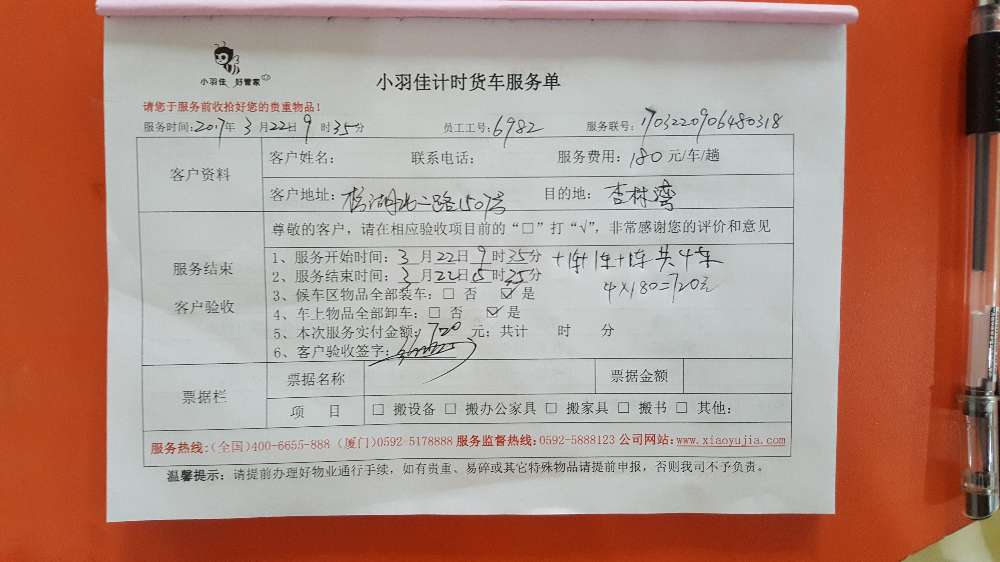 小羽佳 好管家
小羽佳计时货车服务单
请您于服务前收拾好您的贵重物品！
服务时间：2017年3月22日9时35分 员工工号：6982 服务联号：1703220906480318
客户资料
客户姓名： 联系电话： 服务费用：180元/车/趟
客户地址：湖北二路1507号 目的地：杏林湾
服务结束
客户验收
尊敬的客户，请在相应验收项目前的“□”打“√”，非常感谢您的评价和意见
1、服务开始时间：3月22日9时35分 +1车+1车+1车 共4车
2、服务结束时间：3月22日15时35分 4×180=720元
3、候车区物品全部装车：□ 否 ☑ 是
4、车上物品全部卸车：□ 否 ☑ 是
5、本次服务实付金额：720元；共计 时 分
6、客户验收签字：
票据栏
票据名称 票据金额
项 目 □ 搬设备 □ 搬办公家具 □ 搬家具 □ 搬书 □ 其他：
服务热线：（全国）400-6655-888（厦门）0592 5178888 服务监督热线：0592-5888123 公司网站：www.xiaoyujia.com
温馨提示：请提前办理好物业通行手续，如有贵重、易碎或其它特殊物品请提前申报，否则我司不予负责。